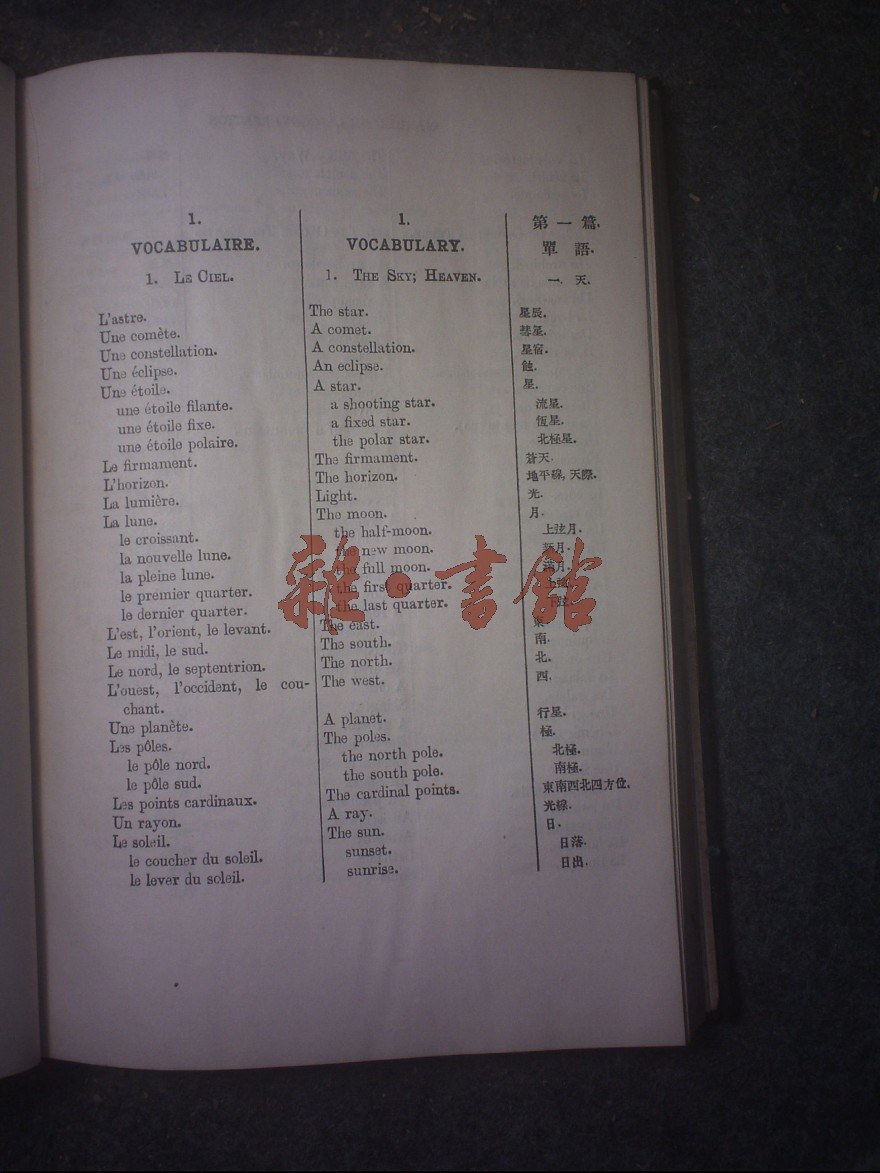 1.
VOCABULAIRE.
1. LE CIEL.
L'astre.
Une comète.
Une constellation.
Une éclipse.
Une étoile.
une étoile filante.
une étoile fixe.
une étoile polaire.
Le firmament.
L'horizon.
La lumière.
La lune.
le croissant.
la nouvelle lune.
la pleine lune.
le premier quarter.
le dernier quarter.
L'est, l'orient, le levant.
Le midi, le sud.
Le nord, le septentrion.
L'ouest, l'occident, le cou-
chant.
Une planète.
Les pôles.
le pôle nord.
le pôle sud.
Les points cardinaux.
Un rayon.
Le soleil.
le coucher du soleil.
le lever du soleil.
1.
VOCABULARY.
1. THE SKY; HEAVEN.
The star.
A comet.
A constellation.
An eclipse.
A star.
a shooting star.
a fixed star.
the polar star.
The firmament.
The horizon.
Light.
The moon.
the half-moon.
the new moon.
the full moon.
the first quarter.
the last quarter.
The east.
The south.
The north.
The west.
A planet.
The poles.
the north pole.
the south pole.
The cardinal points.
A ray.
The sun.
sunset.
sunrise.
第一篇.
單語.
一. 天.
星辰.
彗星.
星宿.
蝕.
星.
流星.
恆星.
北極星.
蒼天.
地平線, 天際.
光.
月.
上弦月.
新月.
滿月.
上弦.
下弦.
東.
南.
北.
四.
行星.
極.
北極.
南極.
東南西北四方位.
光線.
日.
日落.
日出.
雜·書館